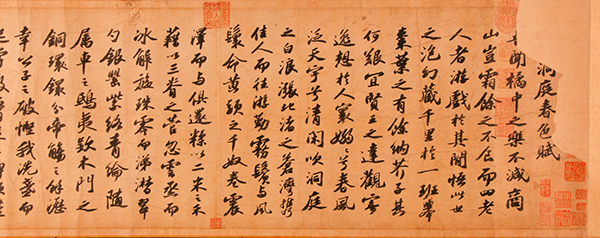 洞庭春色賦
聞橘中之樂不減商
山豈霜餘之不食而四老
人者游戲於其間悟此世
之泡幻藏千里於一班舉
棗葉之有餘納芥子其
何艱宜賢王之達觀寄
逸想於人寰嫋〻兮春風
泛天宇兮清閑吹洞庭
之白浪漲北渚之蒼灣攜
佳人而往游勤霧鬢與風
鬟命黃頭之千奴卷震
澤而與俱還糅以二米之禾
藉以三脊之菅忽雲烝而
冰解旋珠零而涕潸翠
勺銀罌紫絡青綸隨
屬車之鴟夷款木門之
銅鐶分帝觴之餘瀝
幸公子之破慳我洗盞而